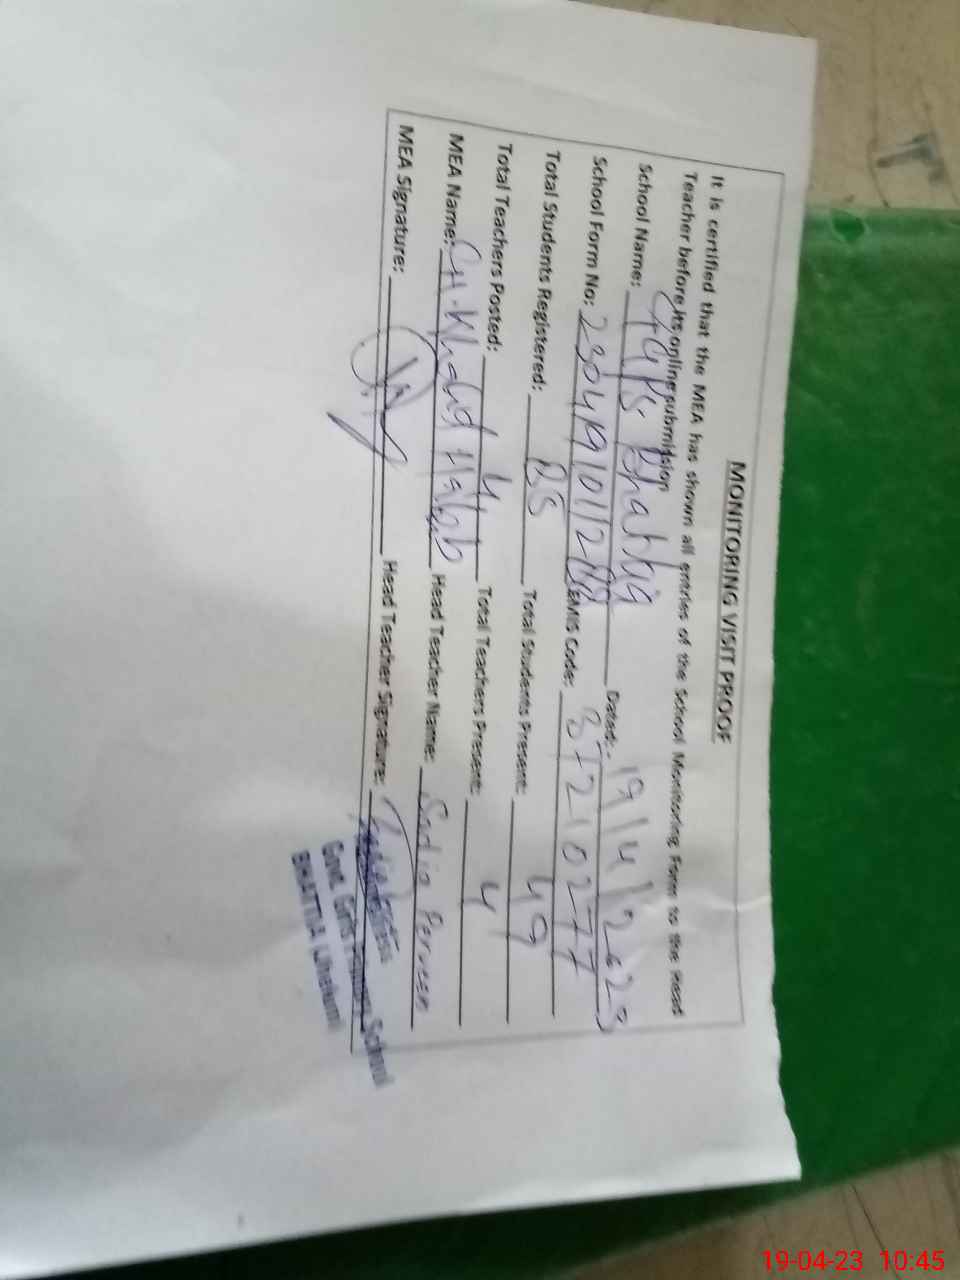 MONITORING VISIT PROOF
It is certified that the MEA has shown all entries of the School Monitoring Form to the Head
Teacher before its online submission
School Name: GGPS Bhattia Dated:- 19/4/2023
School Form No: 23041910112 EMIS Code: 37210277
Total Students Registered: 85 Total Students Present: 49
Total Teachers Posted: 4 Total Teachers Present: 4
MEA Name: CH. Khalid Habib Head Teacher Name: Sadia Perveen
MEA Signature: Head Teacher Signature:
Govt. Girls School
BHATTIA (Jhelum)
19-04-23 10:45